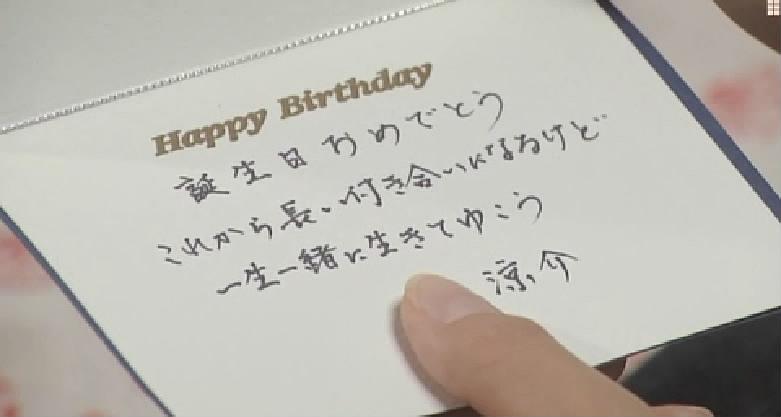 Happy Birthday
誕生日おめでとう
これから長い付き合いになるけど
一生一緒に生きてゆこう
涼介